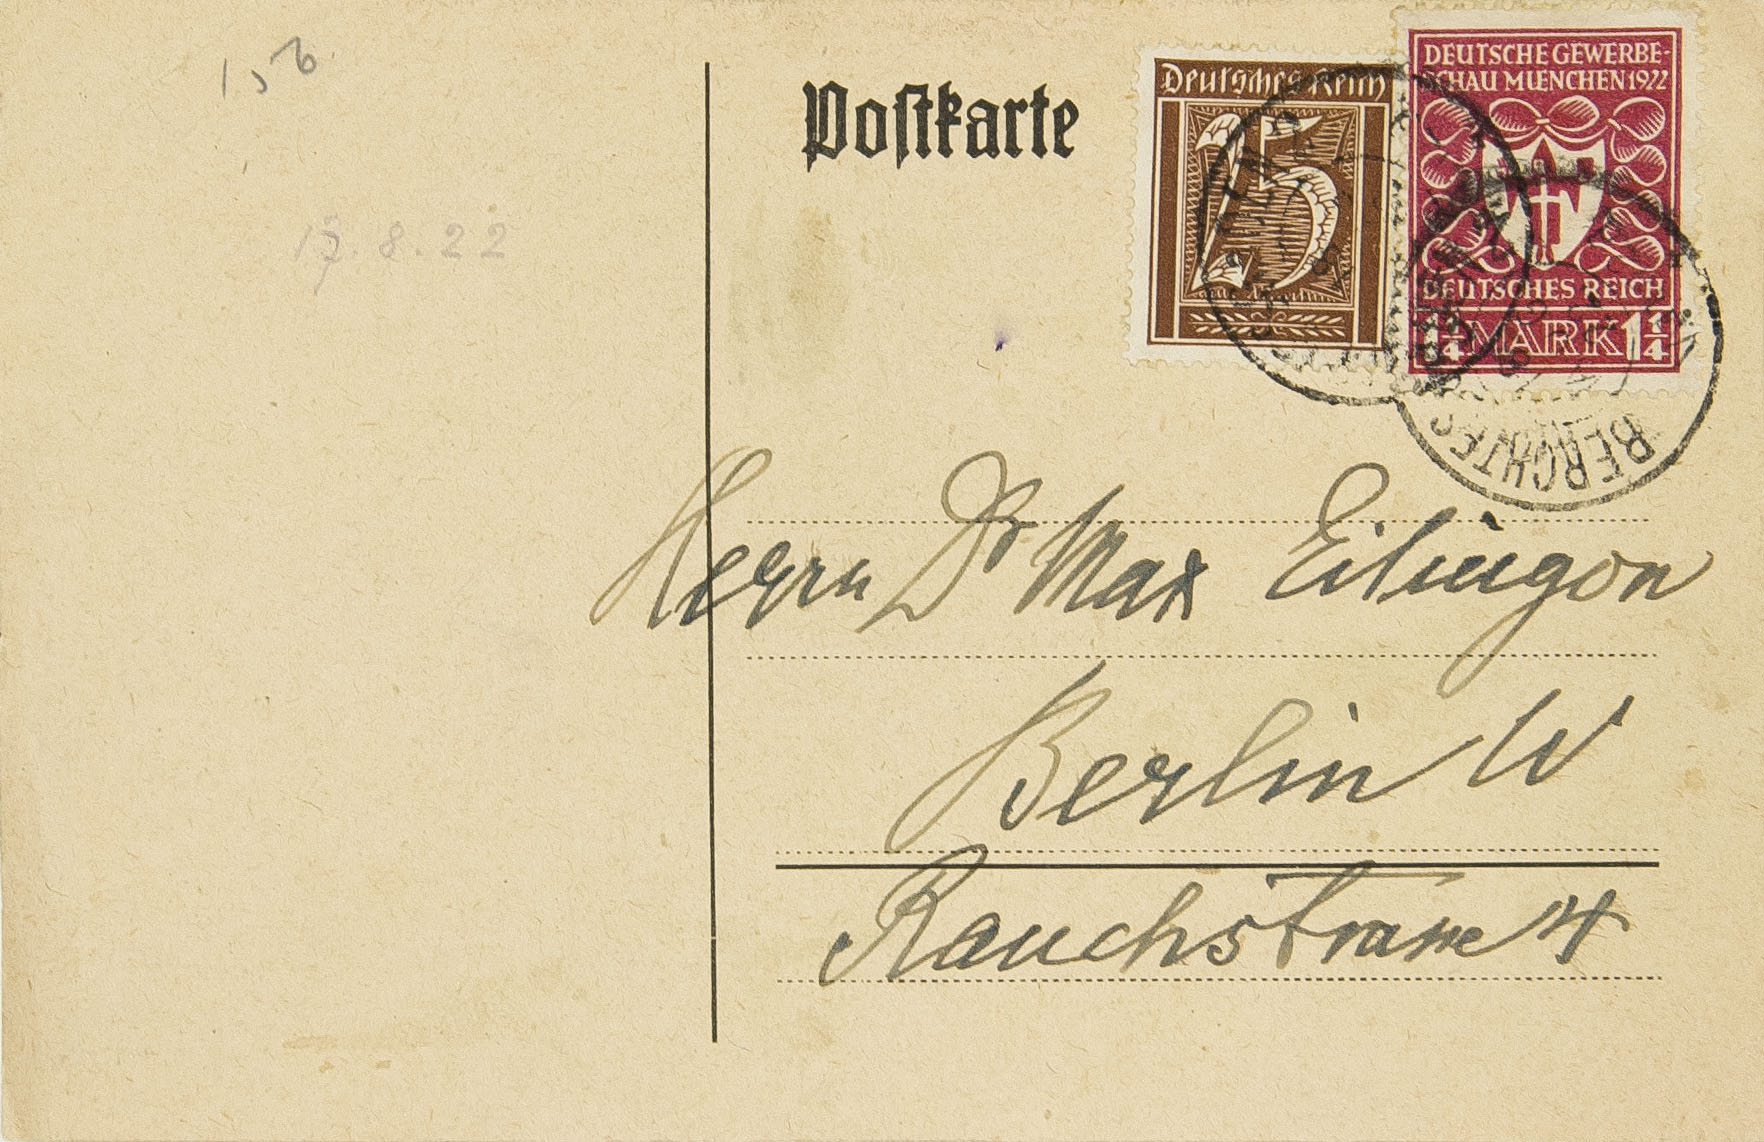 15b.
17.8.22
Postkarte
Deutsches Reich
75
DEUTSCHE GEWERBE-
SCHAU MUENCHEN 1922
DEUTSCHES REICH
1 1/4 MARK 1 1/4
BERCHTES
Herrn Dr Max Eitingon
Berlin W
Rauchstrasse 4